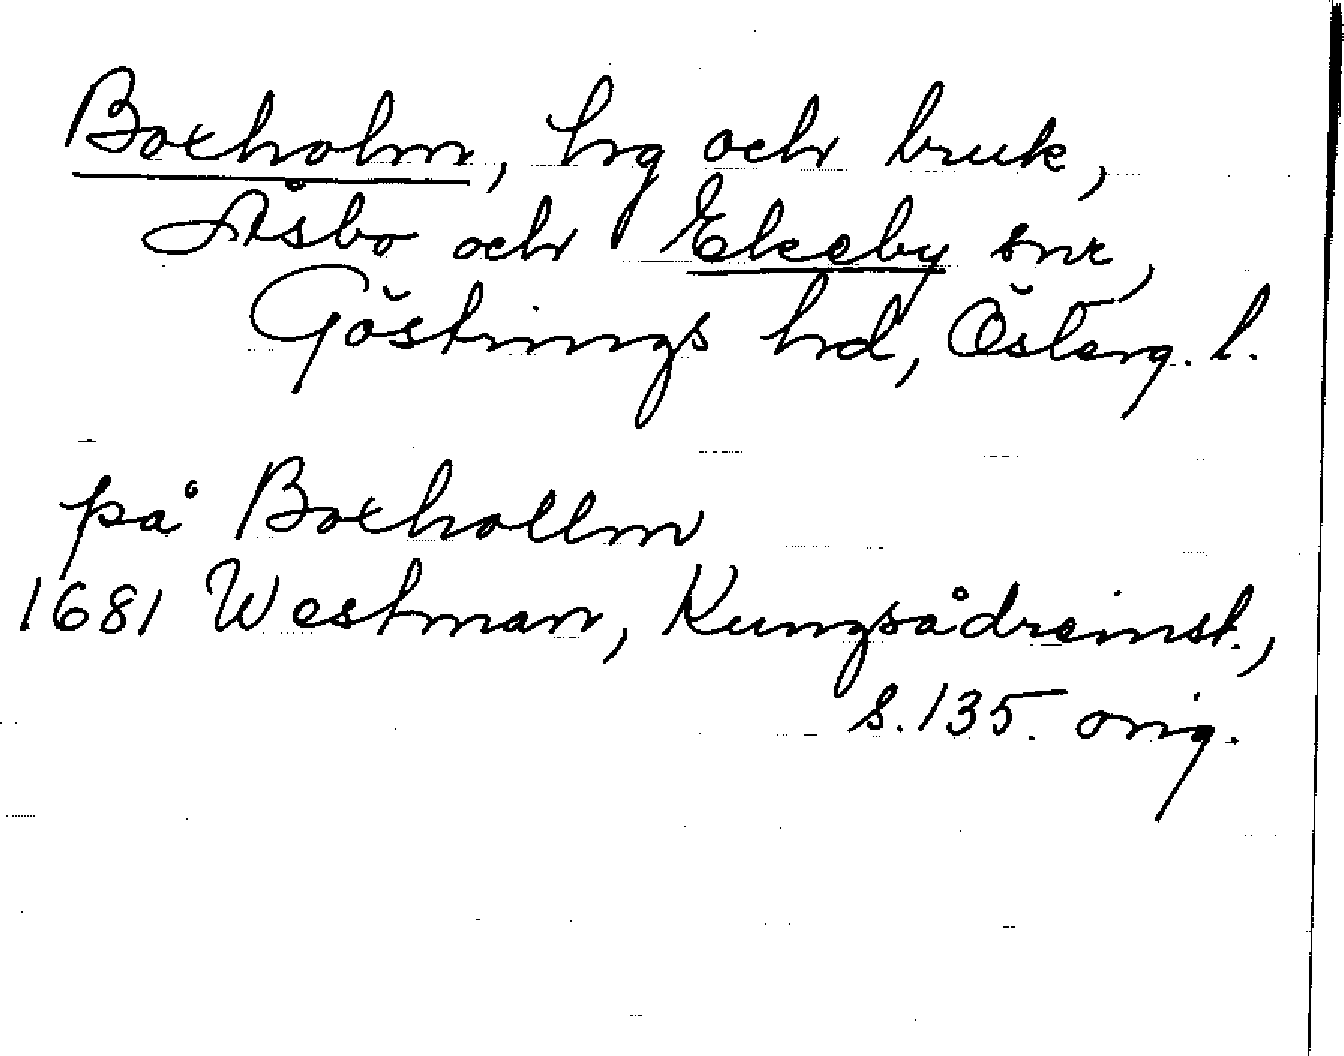 Boxholm, hrg och bruk,
Åsbo och Ekeby snr,
Göstrings hrd, Österg. l.
på Boxhollm
1681 Westman, Kungsådreinst.,
s. 135. orig.